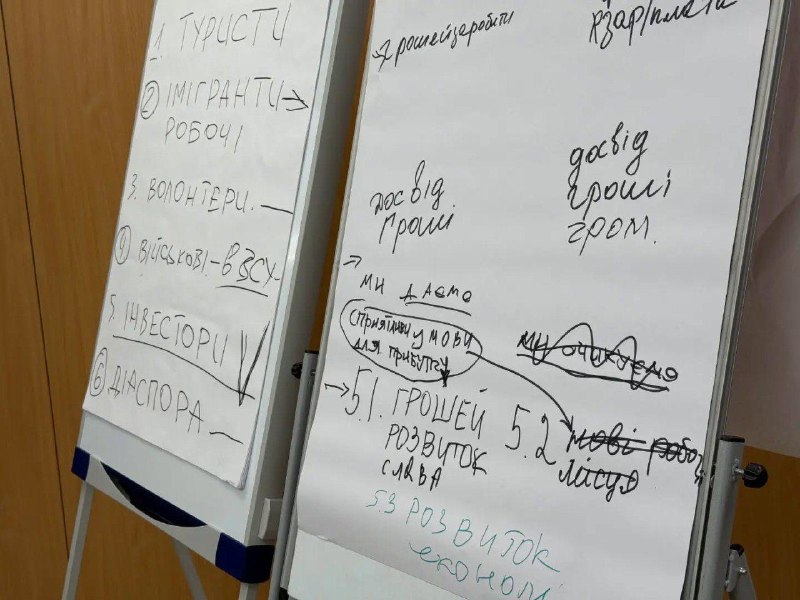 1. ТУРИСТИ
2 ІМІГРАНТИ →
РОБОЧІ
3. ВОЛОНТЕРИ. —
4 ВІЙСЬКОВІ - в ЗСУ-
5. ІНВЕСТОРИ
6 ДІАСПОРА —
→ грошей заробити
досвід
гроші
досвід
гроші
гром.
→
ми даємо
сприятливі умови
для прибутку
ми очикуємо
→ 5.1. ГРОШЕЙ
РОЗВИТОК
СЛАВА
5.2 нові робочі
місця
5.3 РОЗВИТОК
економі